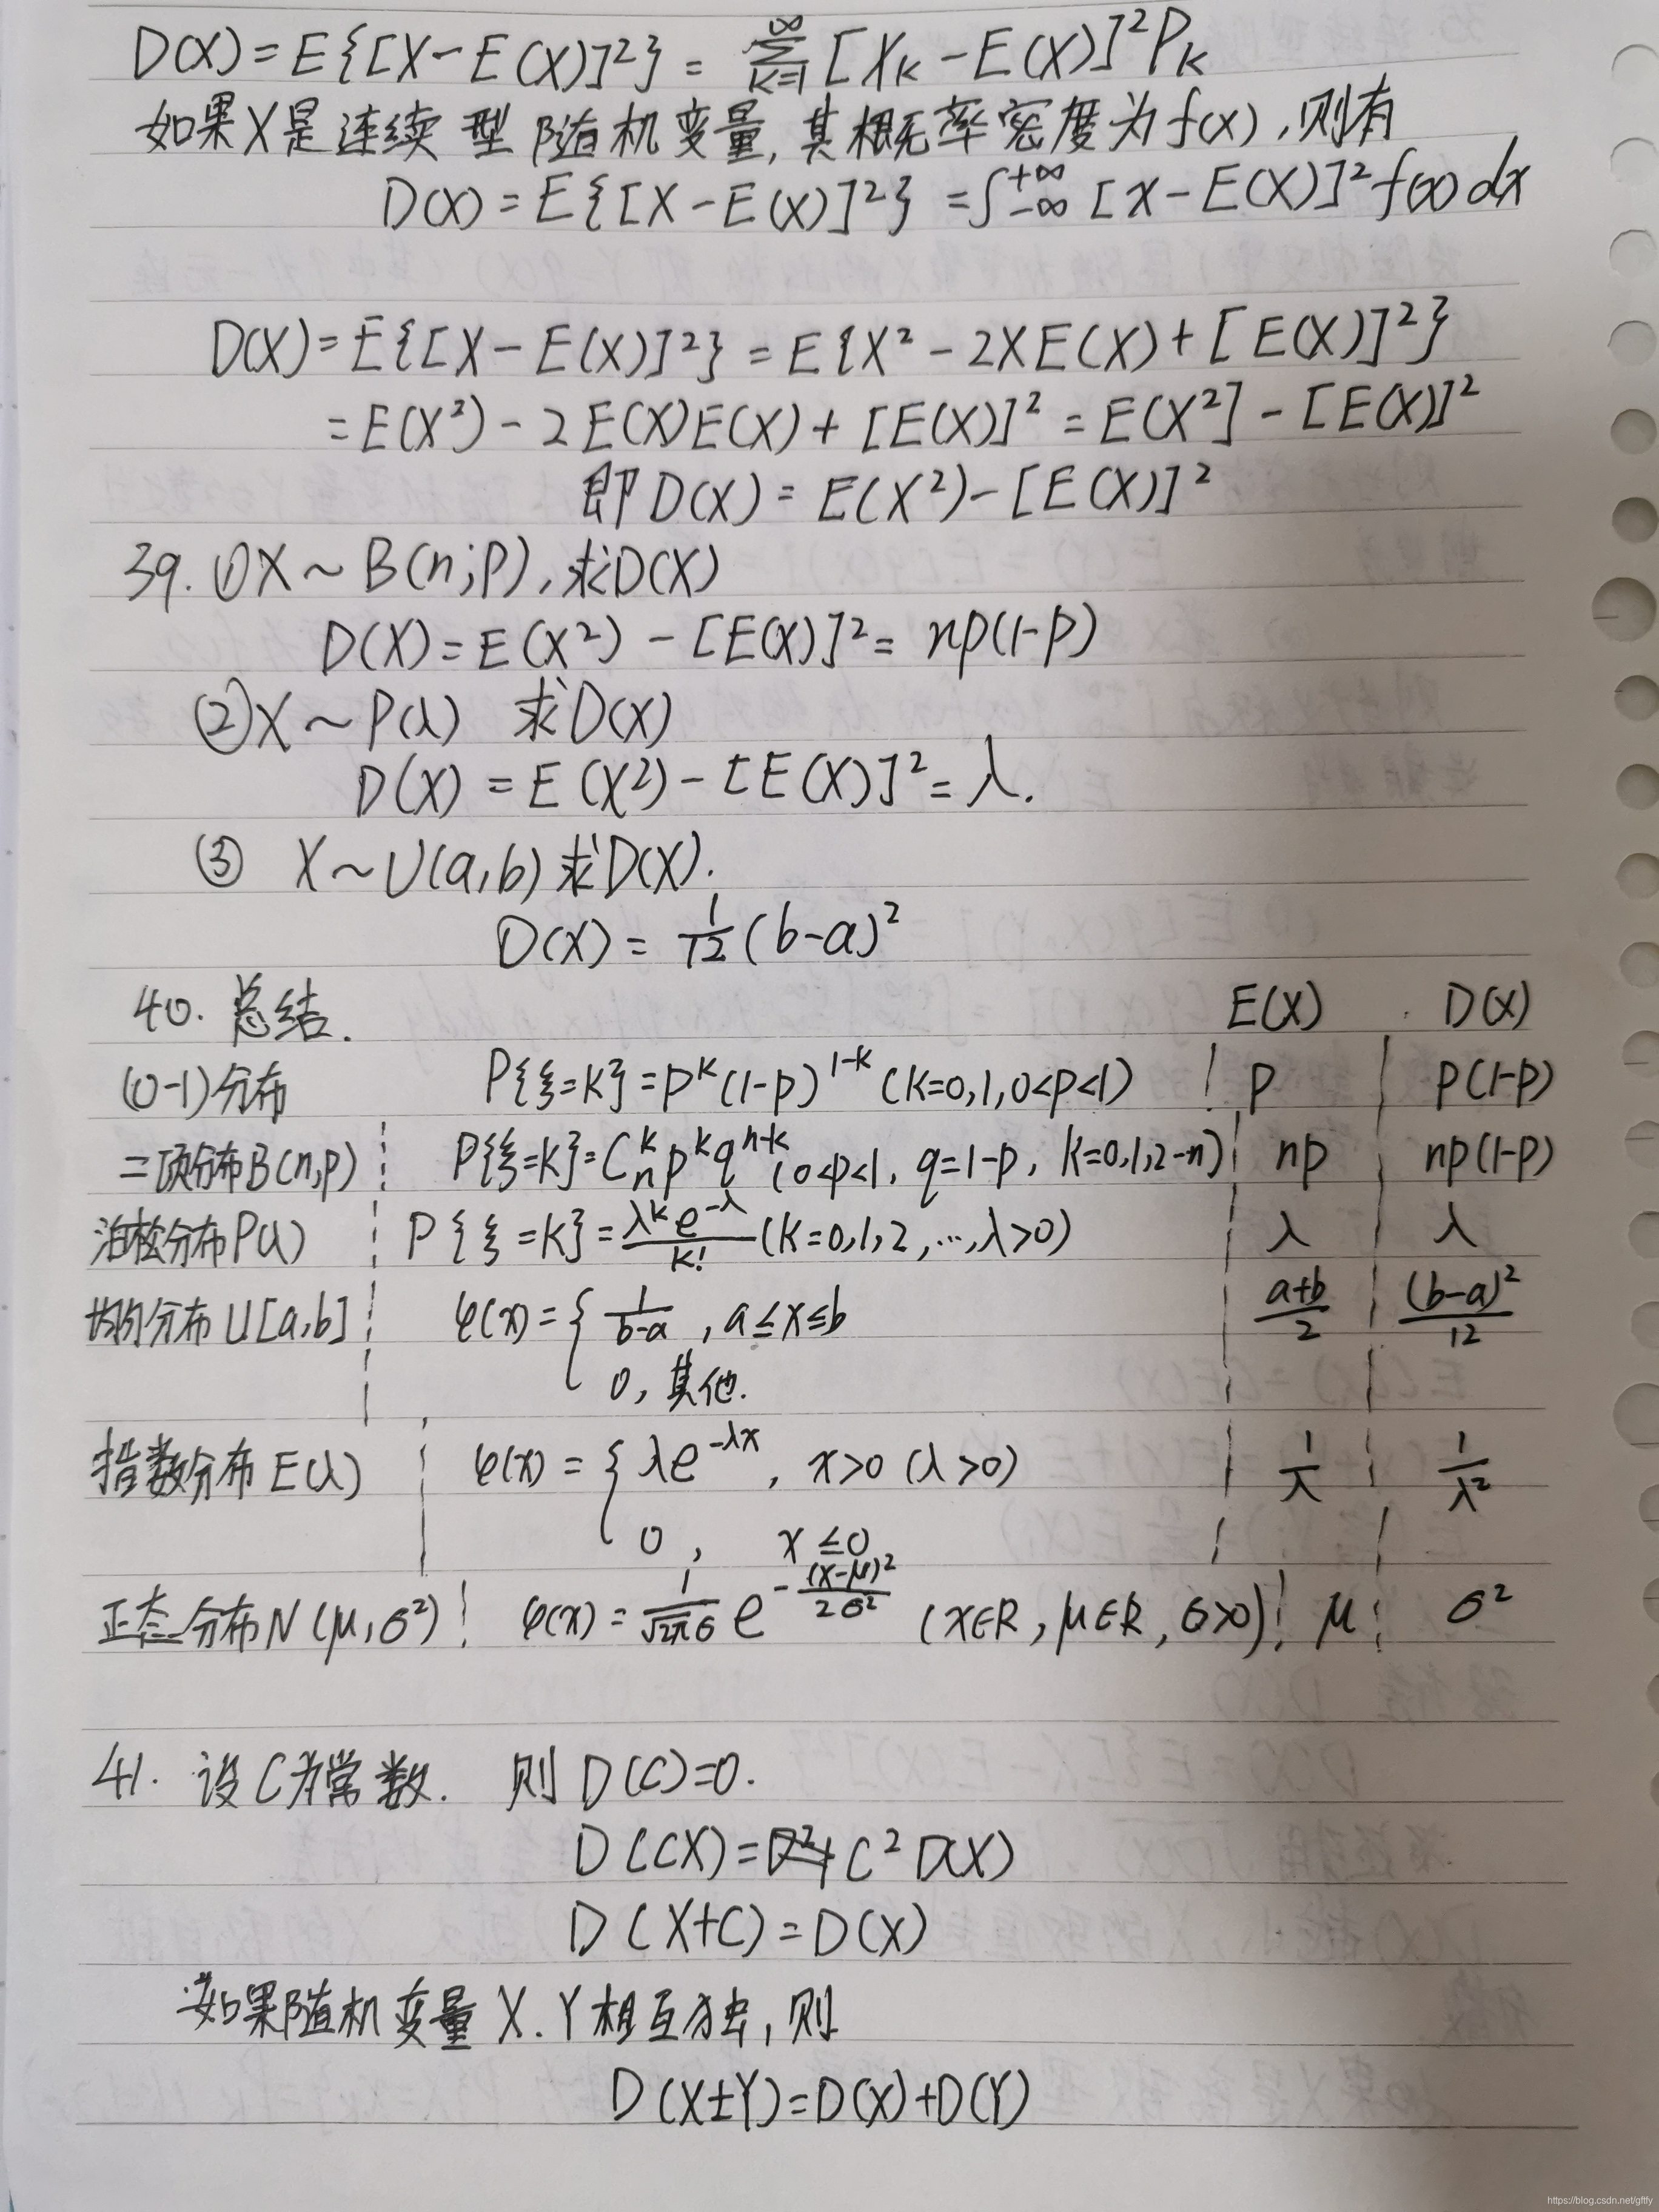 D(X)=E{[X-E(X)]²}=∑_{k=1}^{∞}[X_k-E(X)]²P_k
如果X是连续型随机变量,其概率密度为f(x),则有
D(X)=E{[X-E(X)]²}=∫_{-∞}^{+∞}[x-E(X)]²f(x)dx
D(X)=E{[X-E(X)]²}=E{X²-2XE(X)+[E(X)]²}
=E(X²)-2E(X)E(X)+[E(X)]²=E(X²]-[E(X)]²
即D(X)=E(X²)-[E(X)]²
39. ①X~B(n;p),求D(X)
D(X)=E(X²)-[E(X)]²=np(1-p)
②X~P(λ) 求D(X)
D(X)=E(X²)-[E(X)]²=λ.
③ X~U(a,b)求D(X).
D(X)=1/12(b-a)²
40. 总结. E(X) D(X)
(0-1)分布 P{ξ=k}=p^k(1-p)^{1-k}(k=0,1,0<p<1) p p(1-p)
二项分布B(n,p) P{ξ=k}=C_n^k p^k q^{n-k}(0<p<1,q=1-p,k=0,1,2-n) np np(1-p)
泊松分布P(λ) P{ξ=k}=λ^k e^{-λ}/k!(k=0,1,2,…,λ>0) λ λ
均匀分布U[a,b] φ(x)={1/(b-a),a≤x≤b (a+b)/2 (b-a)²/12
0,其他.
指数分布E(λ) φ(x)={λe^{-λx},x>0(λ>0) 1/λ 1/λ²
0, x≤0
正态分布N(μ,σ²) φ(x)=1/(√2π σ) e^{-(x-μ)²/2σ²} (x∈R,μ∈R,σ>0) μ σ²
41. 设C为常数. 则D(C)=0.
D(CX)=C²D(X)
D(X+C)=D(X)
如果随机变量X.Y相互独立,则
D(X±Y)=D(X)+D(Y)
https://blog.csdn.net/gftfy